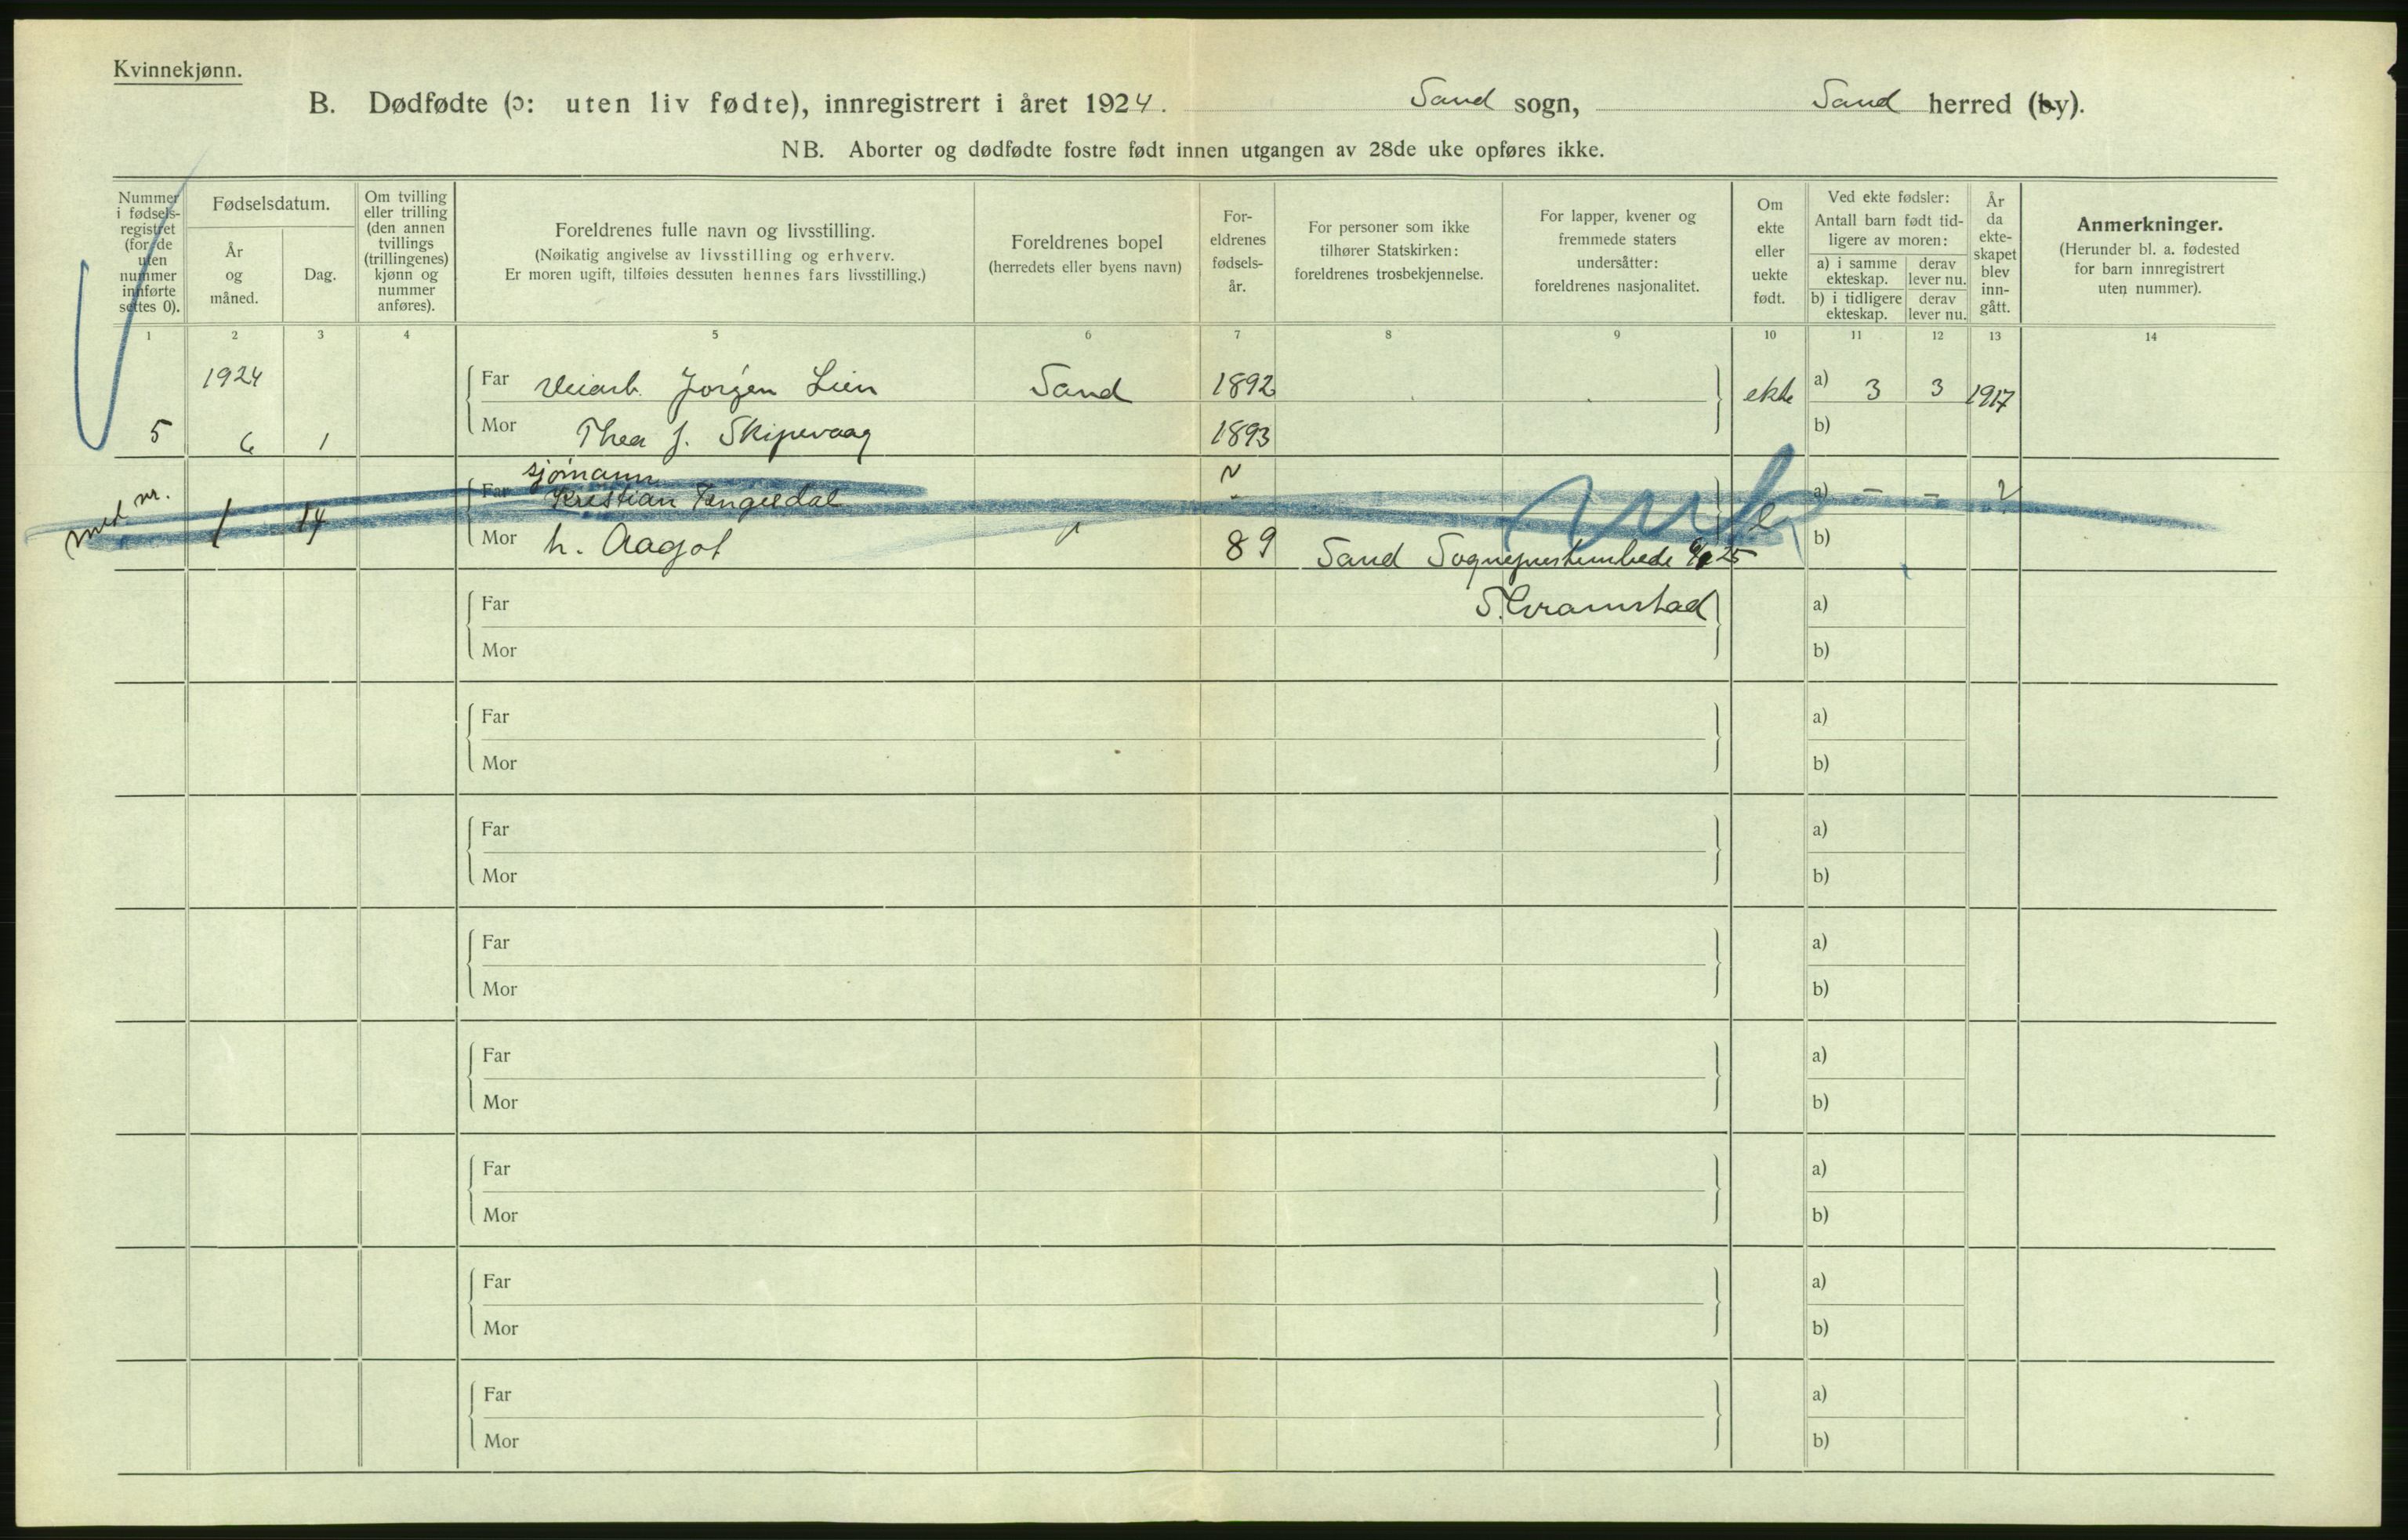 Kvinnekjønn.
B. Dødfødte (ɔ: uten liv fødte), innregistrert i året 1924. Sand sogn, Sand herred (by).
NB. Aborter og dødfødte fostre født innen utgangen av 28de uke opføres ikke.
Nummer
i fødsels-
registret
(for de
uten
nummer
innførte
settes 0).
Fødselsdatum.
År
og
måned.
Dag.
Om tvilling
eller trilling
(den annen
tvillings
(trillingenes)
kjønn og
nummer
anføres).
Foreldrenes fulle navn og livsstilling.
(Nøikatig angivelse av livsstilling og erhverv.
Er moren ugift, tilføies dessuten hennes fars livsstilling.)
Foreldrenes bopel
(herredets eller byens navn)
For-
eldrenes
fødsels-
år.
For personer som ikke
tilhører Statskirken:
foreldrenes trosbekjennelse.
For lapper, kvener og
fremmede staters
undersåtter:
foreldrenes nasjonalitet.
Om
ekte
eller
uekte
født.
Ved ekte fødsler:
Antall barn født tid-
ligere av moren:
a) i samme
ekteskap.
derav
lever nu.
b) i tidligere
ekteskap.
derav
lever nu.
År
da
ekte-
skapet
blev
inn-
gått.
Anmerkninger.
(Herunder bl. a. fødested
for barn innregistrert
uten nummer).
1 2 3 4 5 6 7 8 9 10 11 12 13 14
1924 Far Veiarb. Jorgen Lien Sand 1892 ekte a) 3 3 1917
5 6 1 Mor Thea J. Skipevaag 1893 b)
sjømann
Far Kristian Tengesdal a) – –
1 14 Mor h. Aagot 89 Sand 25 b)
Far a)
Mor b)
Far a)
Mor b)
Far a)
Mor b)
Far a)
Mor b)
Far a)
Mor b)
Far a)
Mor b)
Far a)
Mor b)
Far a)
Mor b)